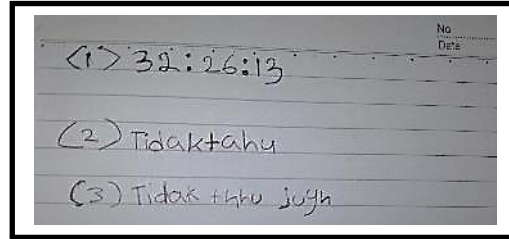 No
Date
<1> 32:26:13
(2) Tidaktahu
(3) Tidak thhu juyh